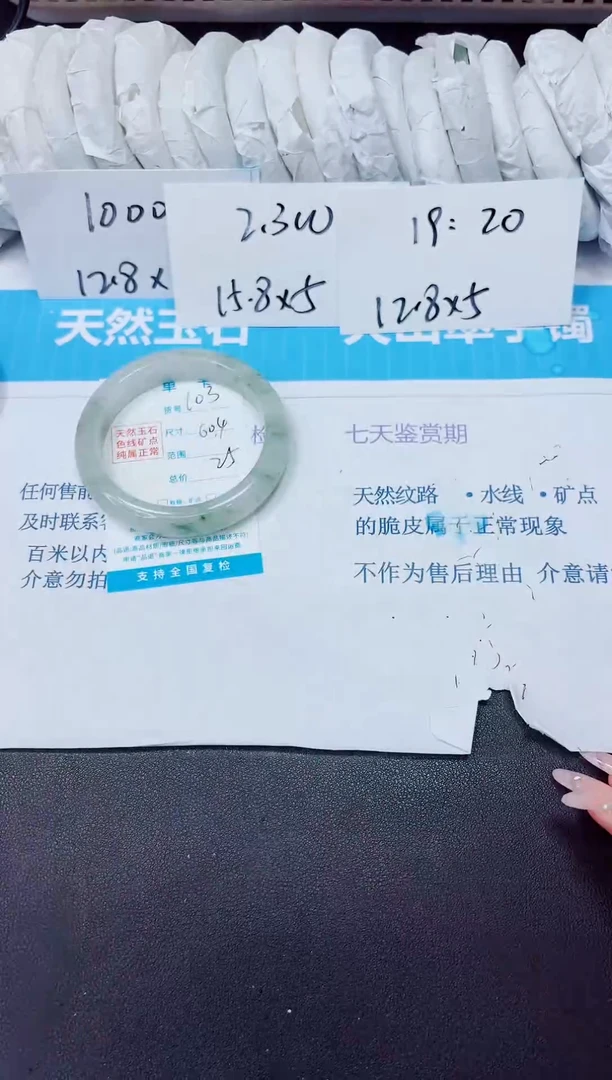 1000
12.8x
2.3W
15.8x5
19:20
12.8x5
天然玉石
手镯
单
货号 103
天然玉石
色线矿点
纯属正常
尺寸 60.4
范围 25
总价
检
七天鉴赏期
任何售
及时联系
百米以内
介意勿拍
支持全国复检
天然纹路 · 水线 · 矿点
的脆皮属于正常现象
不作为售后理由 介意请